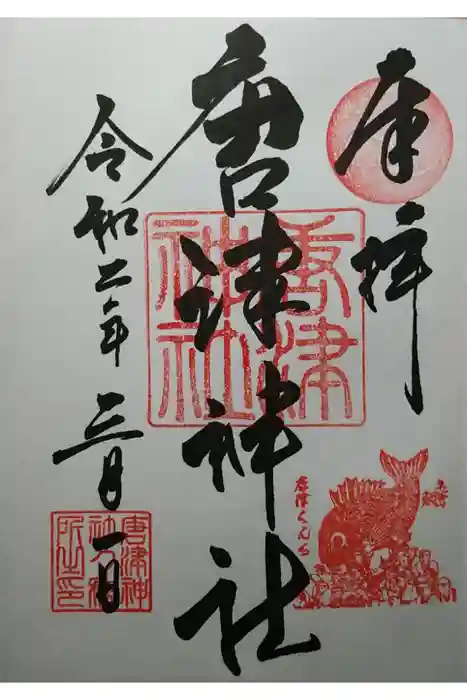 奉拝
唐津神社
令和二年
三月一日
唐津神社
唐津くんち
唐津神
社社務
所之印